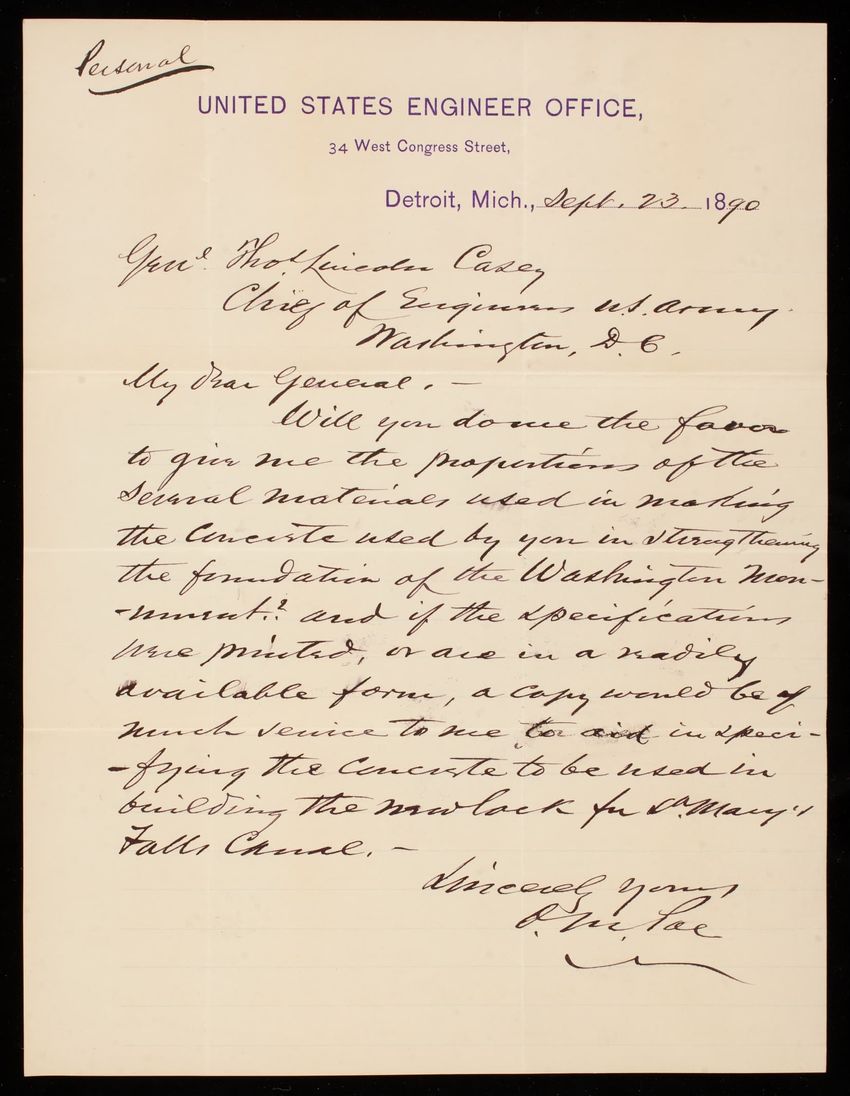 Personal
UNITED STATES ENGINEER OFFICE,
34 West Congress Street,
Detroit, Mich., Sept. 23. 1890
Genl. Thos. Lincoln Casey
Chief of Engineers U.S. Army.
Washington, D.C.
My dear General. —
Will you do me the favor
to give me the proportions of the
several materials used in making
the concrete used by you in strengthening
the foundation of the Washington Mon-
-ument.? and if the specifications
were printed, or are in a readily
available form, a copy would be of
much service to me to aid in speci-
-fying the concrete to be used in
building the new lock for St. Mary's
Falls Canal. —
Sincerely yours
O. M. Poe